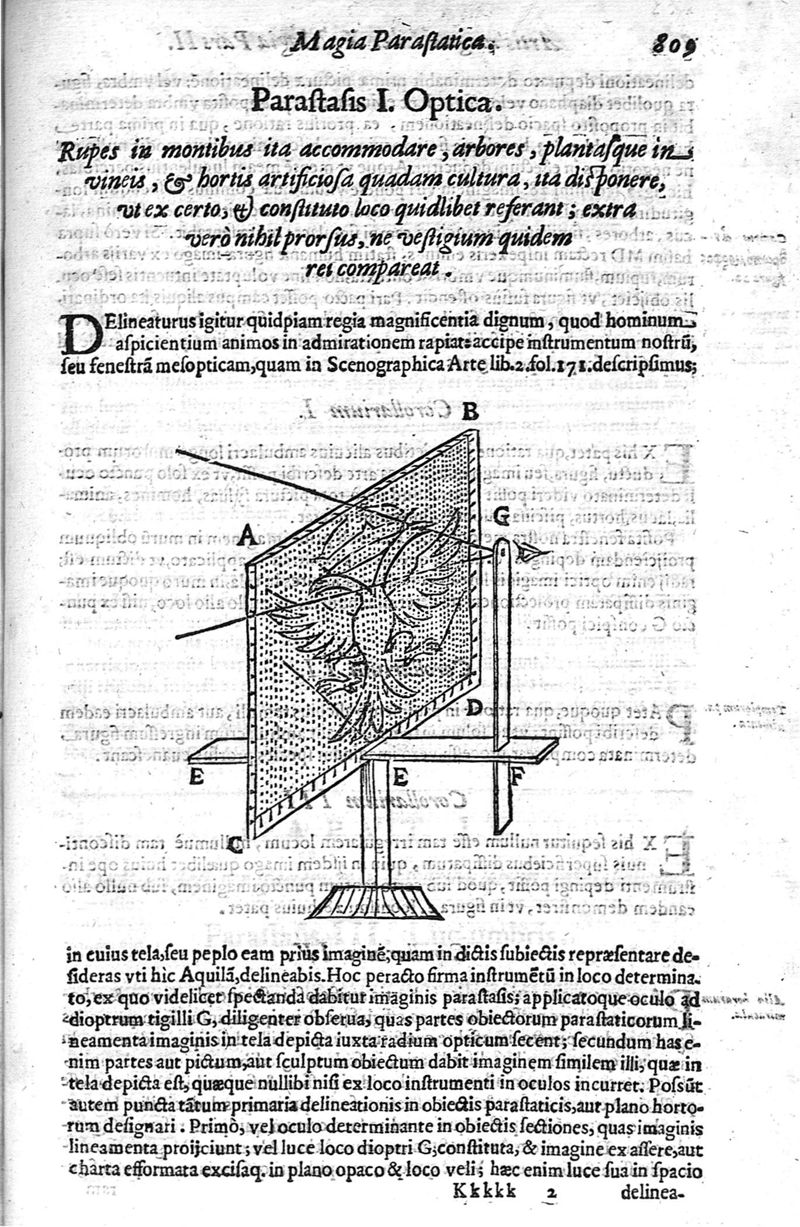 Magia Parastatica. 809
Parastasis I. Optica.
Rupes in montibus ita accommodare, arbores, plantasque in
vineis, & hortis artificiosa quadam cultura, ita disponere,
vt ex certo, & constituto loco quidlibet referant; extra
verò nihil prorsus, ne vestigium quidem
rei compareat.
DElineaturus igitur quidpiam regia magnificentia dignum, quod hominum
aspicientium animos in admirationem rapiat: accipe instrumentum nostrũ,
seu fenestrã mesopticam, quam in Scenographica Arte lib. 2. fol. 171. descripsimus;
B
G
A
D
E
E
F
C
in cuius tela, seu peplo eam priùs imaginẽ, quam in dictis subiectis repræsentare de-
sideras vti hic Aquilã, delineabis. Hoc peracto firma instrumẽtũ in loco determina-
to, ex quo videlicet spectanda dabitur imaginis parastasis; applicatoque oculo ad
dioptrum tigilli G, diligenter obserua, quas partes obiectorum parastaticorum li-
neamenta imaginis in tela depicta iuxta radium opticum secent; secundum has e-
nim partes aut pictum, aut sculptum obiectum dabit imaginem similem illi, quæ in
tela depicta est, quæque nullibi nisi ex loco instrumenti in oculos incurret. Possũt
autem puncta tãtum primaria delineationis in obiectis parastaticis, aut plano horto-
rum designari. Primò, vel oculo determinante in obiectis sectiones, quas imaginis
lineamenta proijciunt; vel luce loco dioptri G, constituta, & imagine ex assere, aut
charta efformata excisaq. in plano opaco & loco veli; hæc enim luce sua in spacio
Kkkkk 2 delinea-